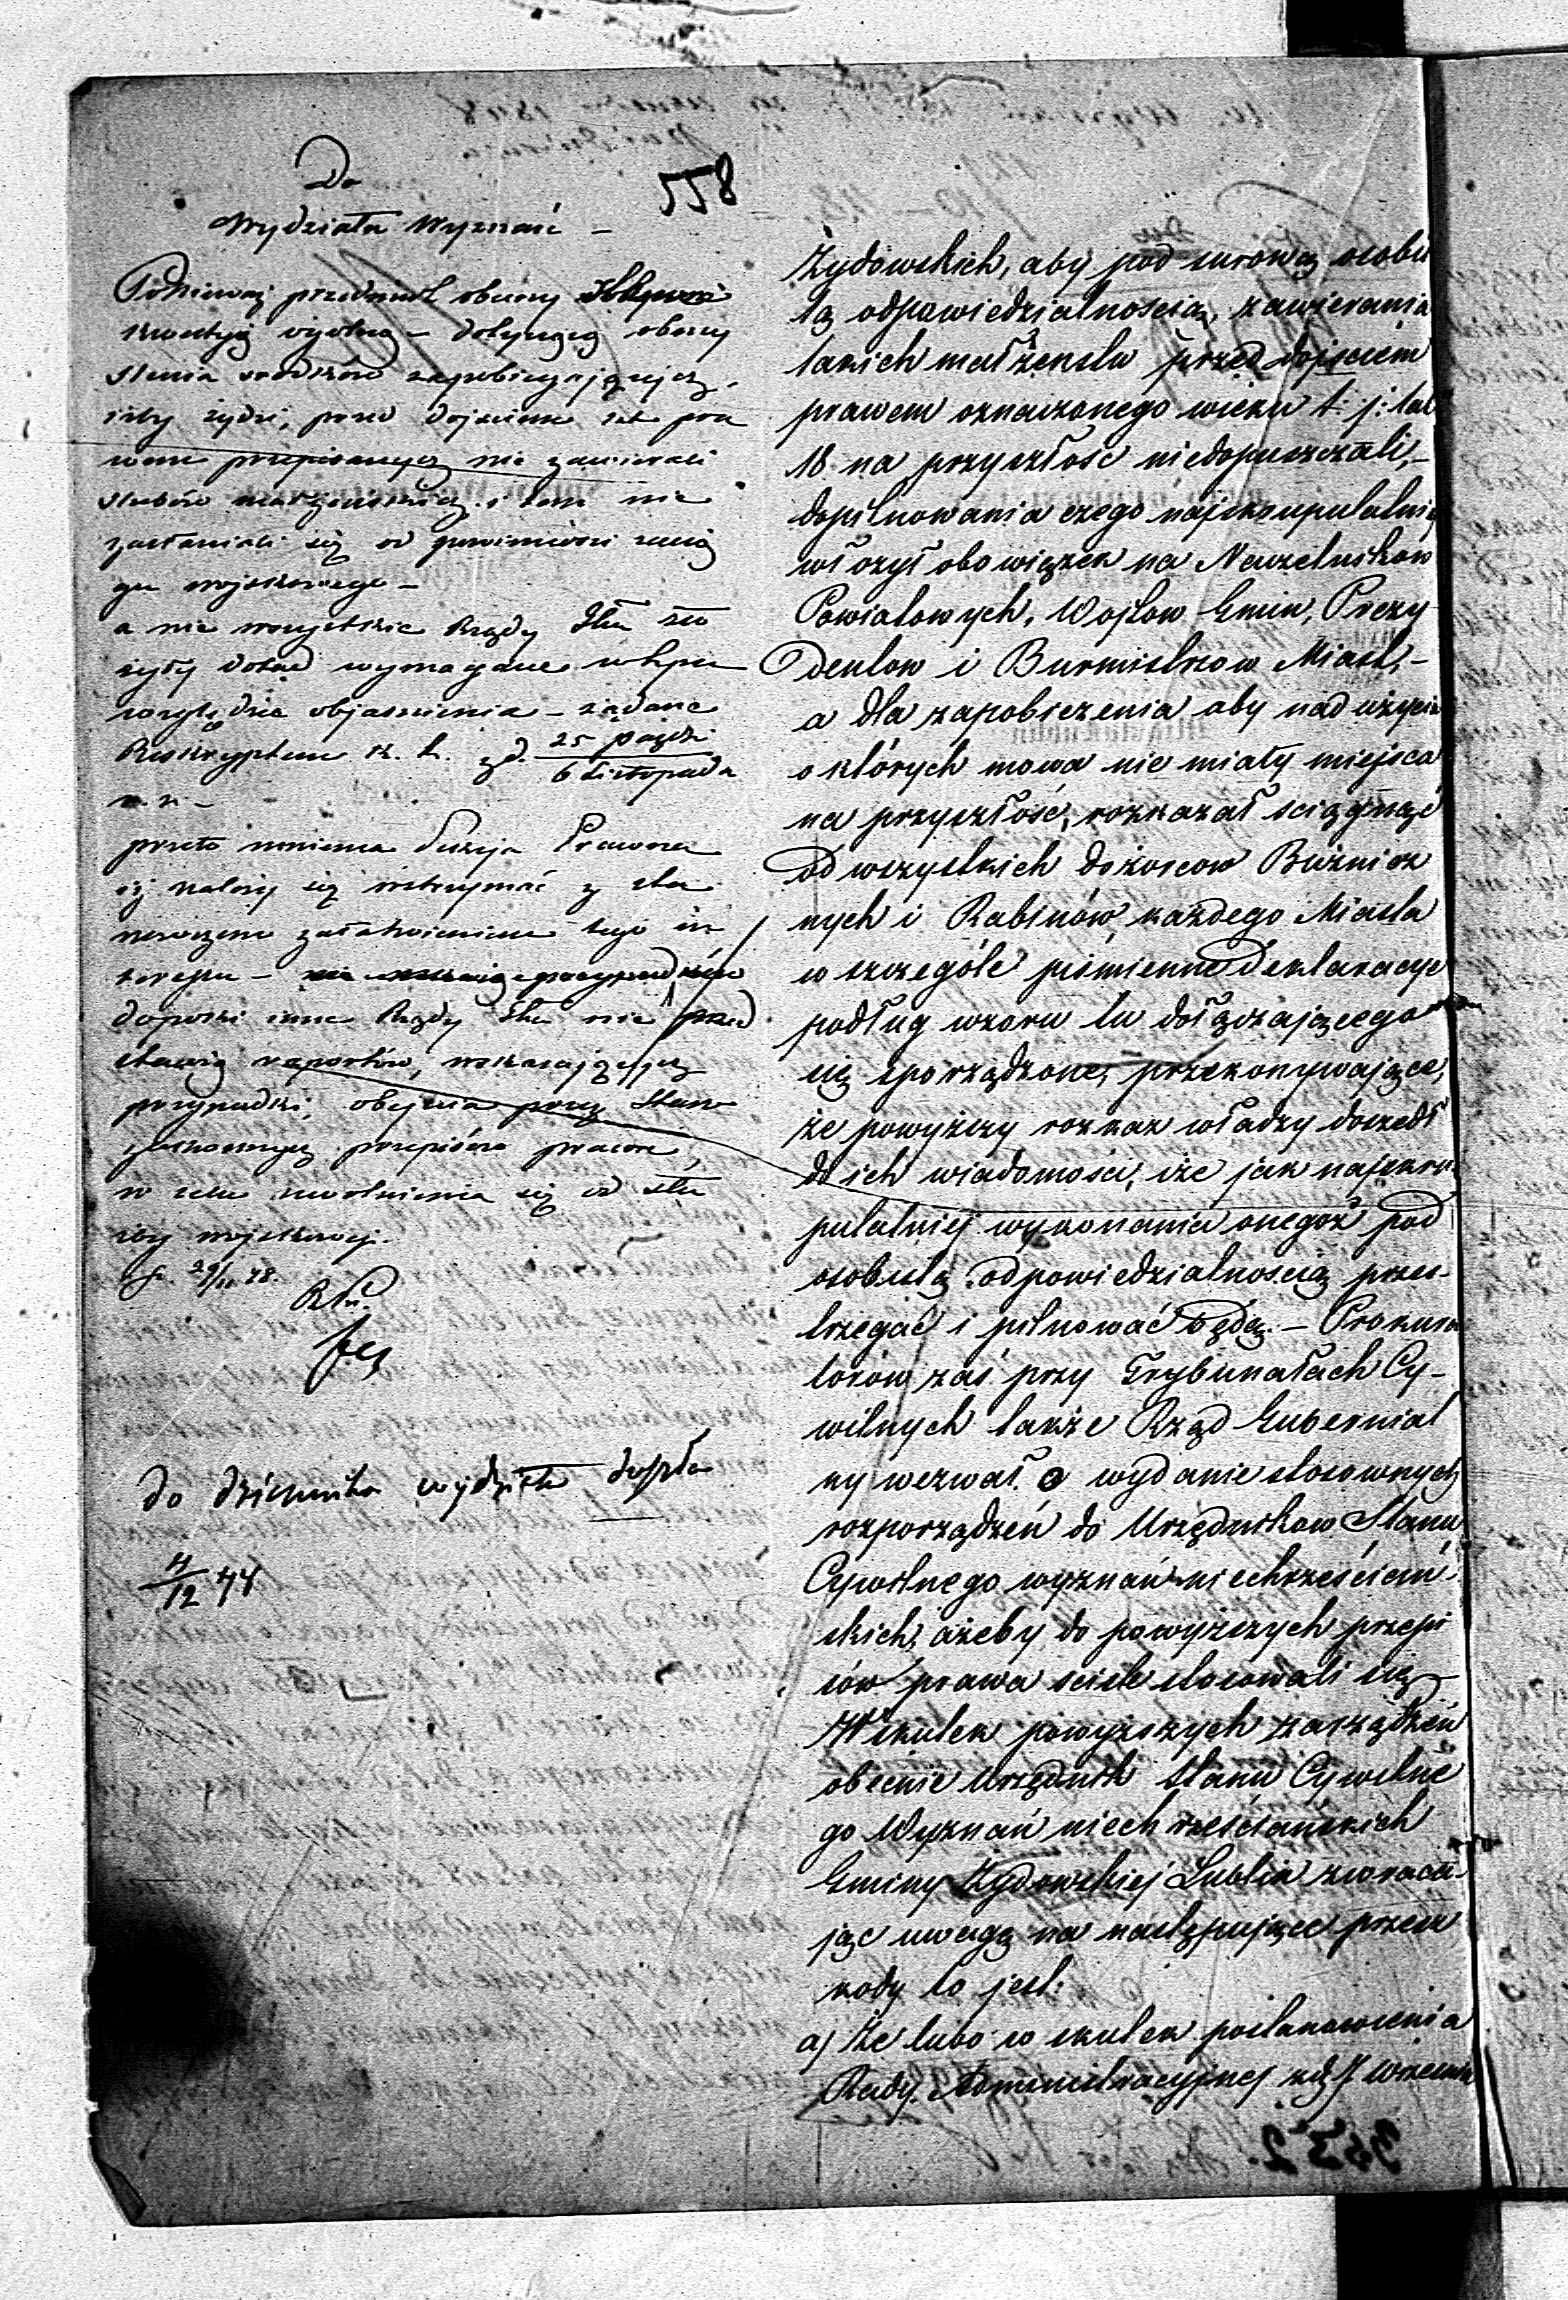 558
Do
Wydziału Wyznań –
Ponieważ przedmiot obecny
kwestyią ogólną – dotyczącą obmy
ślenia środków zapobiegających
iżby żydzi, przed dojściem lat pra
wem przepisanych nie zawierali
ślubów małżeńskich i tem nie
zasłaniali się od powinności zacią
gu wojskowego –
a nie wszystkie Rządy Gub. zło
żyły dotąd wymagane w tym
względzie objaśnienia – żądane
Reskryptem K. R. z d. 25 paźdz. / 6 Listopada
r. b. –
przeto mniema Sekcja Prawna
iż należy się wstrzymać z sta
nowczem załatwieniem tego in
teresu –
dopóki inne Rządy Gub. nie przed
stawią raportów, wskazujących
przypadki, obejścia przez Staro
zakonnych przepisów prawa,
w celu uwolnienia się od służ
by wojskowej.
29/11 48.
do dziennika wydziału
4/12 44
Żydowskich, aby pod surową osobis
tą odpowiedzialnością, zawierania
takich małżeństw przed dojściem
prawem oznaczonego wieku t: j: lat
18 na przyszłość niedopuszczali, –
dopilnowania czego najskrupulatniej
włożył obowiązek na Naczelników
Powiatowych, Wójtow Gmin, Prezy
dentow i Burmistrzow Miast, –
a dla zapobieżenia aby nadużycia
o których mowa nie miały miejsca
na przyszłość, rozkazał ściągnąć
od wszystkich dozorcow Bużnicz
nych i Rabinów każdego Miasta
w szczególe piśmienne Deklaracye
podług wzoru tu dołączającego
się sporządzone, przekonywające,
że powyższy rozkaz władzy doszedł
do ich wiadomości, i że jak najskru
pulatniej wykonania onegoż pod
osobistą odpowiedzialnością przes-
trzegać i pilnować będą. – Prokura
torów zaś przy Trybunałach Cy-
wilnych także Rząd Gubernial
ny wezwał o wydanie stosownych
rozporządzeń do Urzędnikow Stanu
Cywilnego wyznań niechrześciań
skich, ażeby do powyższych przepi
sów prawa ściśle stosowali się
W skutek powyższych zarządzeń
obecnie Urzędnik Stanu Cywilne
go Wyznań niechrześciańskich
Gminy Żydowskiej Lublin zwraca
jąc uwagę na następujące przesz
kody to jest:
a) Że lubo w skutek postanowienia
Rady Administracyjnej z d. 7 Wrześnie